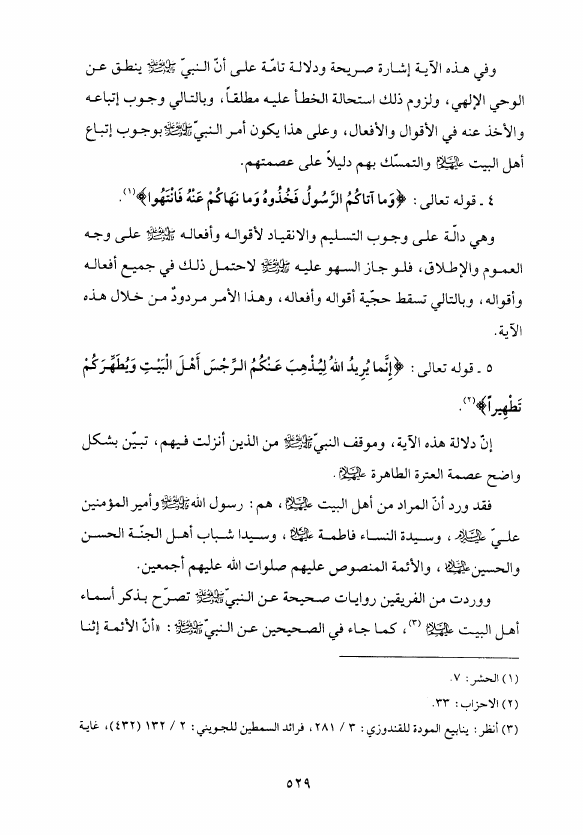 وفي هـذه الآيـة إشارة صريحة ودلالة تامّـة علـى أنّ النبيّ ﷺ ينطق عـن
الوحي الإلهي، ولزوم ذلك استحالة الخطأ عليـه مطلقـاً، وبالتالي وجـوب إتباعـه
والأخذ عنه في الأقوال والأفعال، وعلى هذا يكون أمر النبيّ ﷺ بوجوب إتباع
أهل البيت عليهم السلام والتمسّك بهم دليلاً على عصمتهم.
٤ ـ قوله تعالى: ﴿وَما آتاكُمُ الرَّسُولُ فَخُذُوهُ وَما نَهاكُمْ عَنْهُ فَانْتَهُوا﴾(١).
وهي دالّـة علـى وجـوب التسليم والانقياد لأقوالـه وأفعالـه ﷺ على وجه
العمـوم والإطـلاق، فلـو جـاز السهو عليـه ﷺ لاحتمـل ذلـك في جميـع أفعالـه
وأقواله، وبالتالي تسقط حجّية أقواله وأفعاله، وهـذا الأمر مـردودٌ مـن خلال هذه
الآية.
٥ ـ قوله تعالى: ﴿إِنَّما يُرِيدُ اللهُ لِيُذْهِبَ عَنْكُمُ الرِّجْسَ أَهْلَ الْبَيْتِ وَيُطَهِّرَكُمْ
تَطْهِيراً﴾(٢).
إنّ دلالة هذه الآية، وموقف النبيّ ﷺ من الذين أنزلت فيهم، تبيّن بشكل
واضح عصمة العترة الطاهرة عليهم السلام.
فقد ورد أنّ المراد من أهل البيت عليهم السلام، هم: رسول الله ﷺ وأمير المؤمنين
علـيّ عليه السلام، وسيدة النساء فاطمـة عليها السلام، وسيدا شباب أهـل الجنّـة الحسن
والحسين عليهما السلام، والأئمة المنصوص عليهم صلوات الله عليهم أجمعين.
ووردت من الفريقين روايـات صـحيحة عـن النبـيّ ﷺ تصـرّح بـذكر أسماء
أهـل البيـت عليهم السلام(٣)، كمـا جـاء في الصحيحين عن النبيّ ﷺ: «أنّ الأئمـة إثنـا
(١) الحشر: ٧.
(٢) الاحزاب: ٣٣.
(٣) أنظر: ينابيع المودة للقندوزي: ٣ / ٢٨١، فرائد السمطين للجويني: ٢ / ١٣٢ (٤٣٢)، غاية
٥٢٩